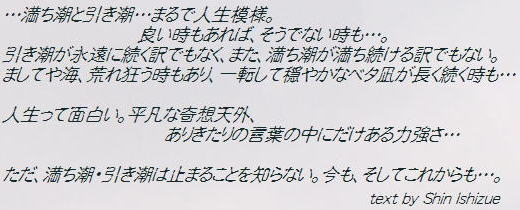 …満ち潮と引き潮…まるで人生模様。
良い時もあれば、そうでない時も…。
引き潮が永遠に続く訳でもなく、また、満ち潮が満ち続ける訳でもない。
ましてや海、荒れ狂う時もあり、一転して穏やかなベタ凪が長く続く時も…
人生って面白い。平凡な奇想天外、
ありきたりの言葉の中にだけある力強さ…
ただ、満ち潮・引き潮は止まることを知らない。今も、そしてこれからも…。
text by Shin Ishizue